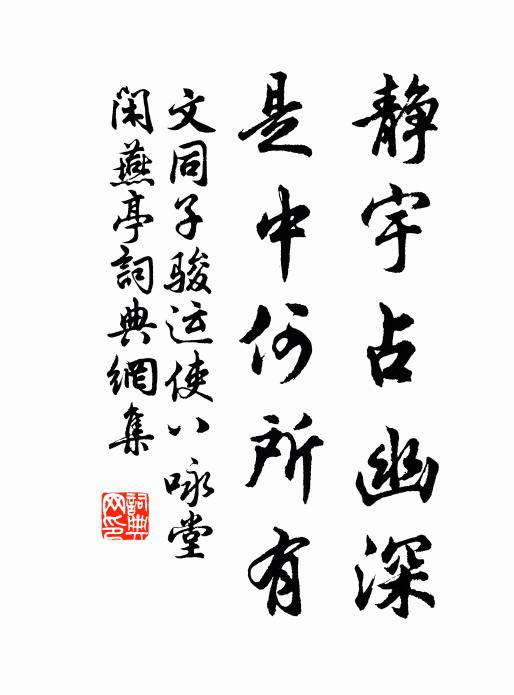 静宇占幽深
是中何所有
文同子骏运使八咏堂
闲燕亭詞典網集
詞典网印